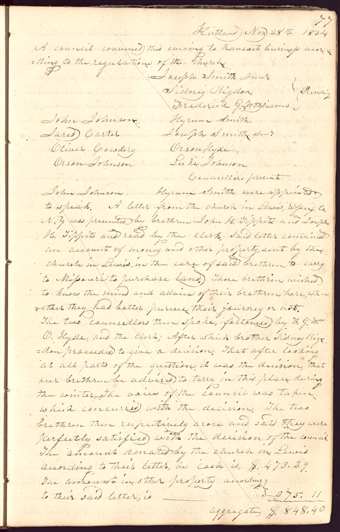 77
Kirtland, Nov. 28th 1834
A council convened this evening to transact business accor-
ding to the regulations of the Church
Joseph Smith Junr.
Sidney Rigdon
Frederick G. Williams
Presiding
John Johnson Hyrum Smith
Jared Carter Joseph Smith Senr
Oliver Cowdery Orson Hyde
Orson Johnson Luke Johnson
Councillors present
John Johnson Hyrum Smith were appointed
to speak. A letter from the church in Lewis, Essex Co
N.Y. was presented by brethren John H. Tippits and Joseph
H. Tippits and read by the Clerk. Said letter contained
an account of money and other property, sent by the
church in Lewis, in the care of said brethren to carry
to Missouri to purchase land. These brethren wished
to know the mind and advice of their brethren here, whe-
ther they had better pursue their journey or not.
The two councillors then spoke, followed by F. G. Wms
O. Hyde, and the Clerk; After which brother Sidney Rig-
don proceeded to give a decision, That after looking
at all parts of the question, it was the decision, that
our brethren be advised to tarry in this place during
the winter. The voice of the Council was taken,
which concurred with the decision. The two
brethren then respectively arose and said they were
perfectly satisfied with the decision of the council
The amount donated by the church in Lewis
according to their letter, in cash is, $. 473.29.
The amount in other property according
to their said letter, is 375. 11
aggregate $. 848.40